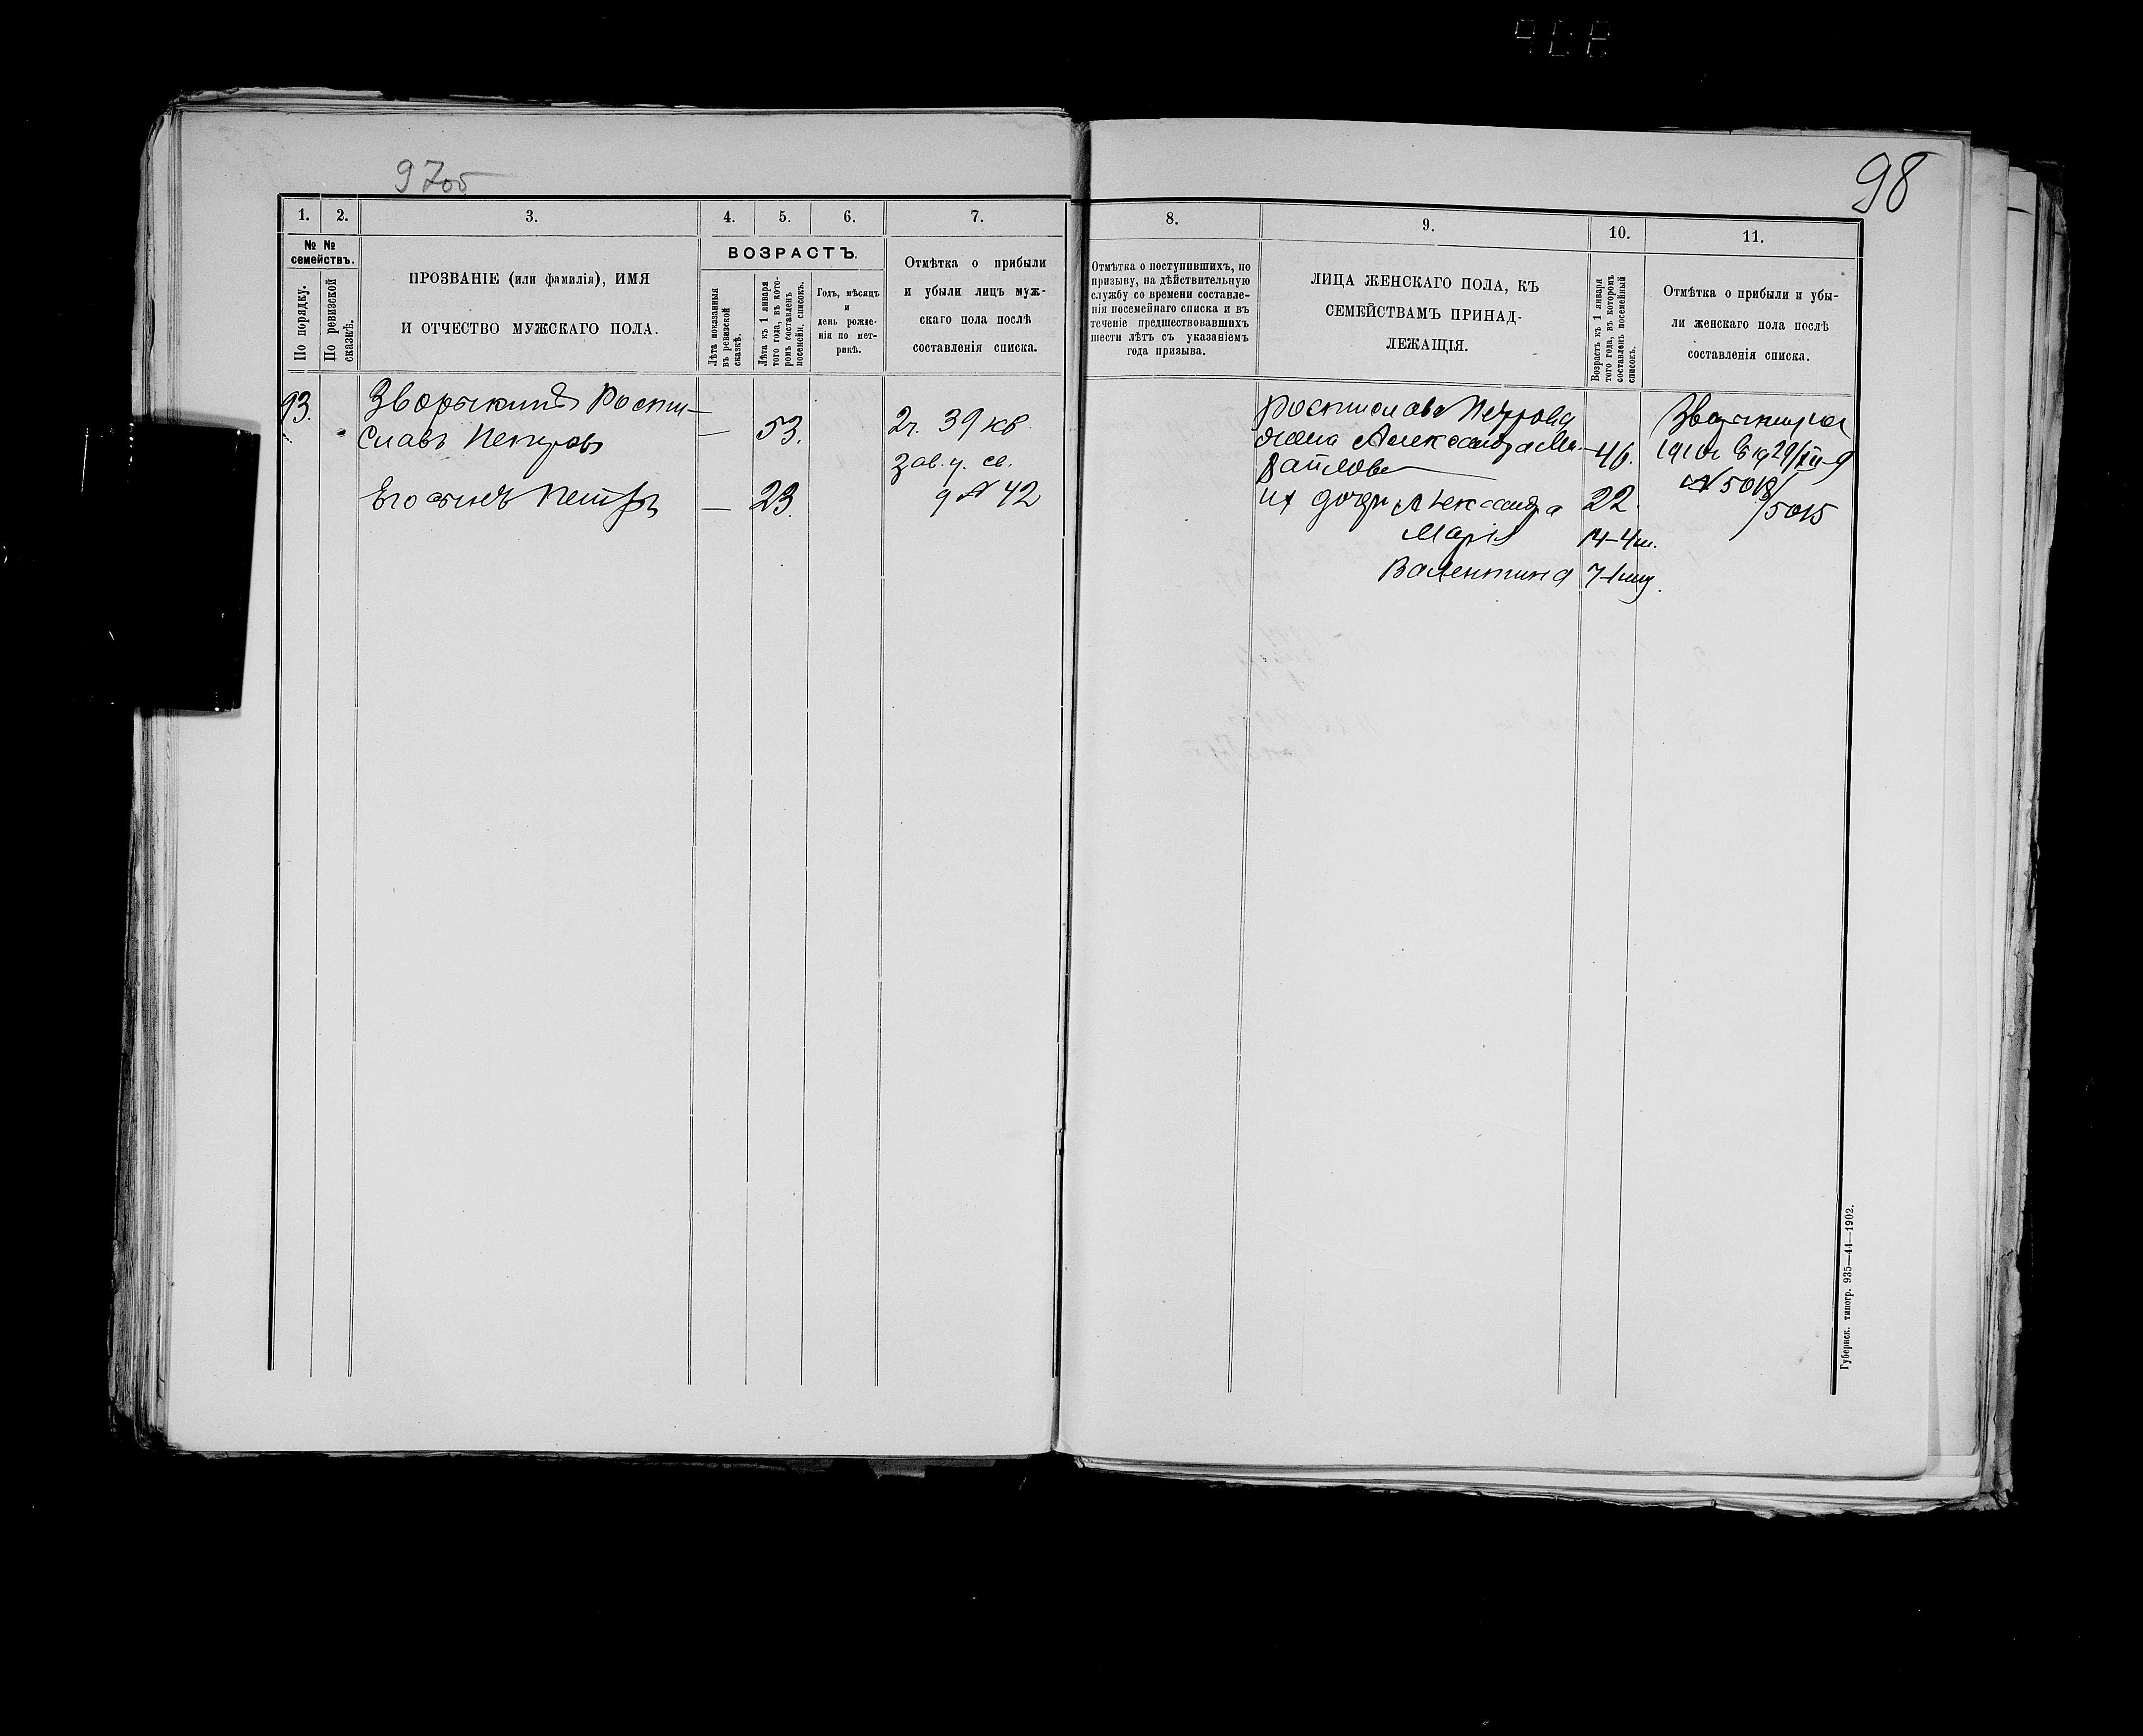 97об
98
1. 2. 3. 4. 5. 6. 7.
№ № семействъ.
По порядку.
По ревизской сказкѣ.
ПРОЗВАНІЕ (или фамилія), ИМЯ
И ОТЧЕСТВО МУЖСКАГО ПОЛА.
ВОЗРАСТЪ.
Лѣта показанныя въ ревизской сказкѣ.
Лѣта къ 1 января того года, въ которомъ составленъ посемейн. списокъ.
Годъ, мѣсяцъ
и
день рожде-
нія по мет-
рикѣ.
Отмѣтка о прибыли
и убыли лицъ муж-
скаго пола послѣ
составленія списка.
93.
Зворыкинъ Рости-
славъ Петровъ — 53.
2ч. 39 кв.
Зав. ч. св.
9 № 42
Его сынъ Петръ — 23.
8. 9. 10. 11.
Отмѣтка о поступившихъ, по
призыву, на дѣйствительную
службу со времени составле-
нія посемейнаго списка и въ
теченіе предшествовавшихъ
шести лѣтъ съ указаніемъ
года призыва.
ЛИЦА ЖЕНСКАГО ПОЛА, КЪ
СЕМЕЙСТВАМЪ ПРИНАД-
ЛЕЖАЩІЯ.
Возрастъ къ 1 января того года, въ которомъ составленъ посемейный списокъ.
Отмѣтка о прибыли и убы-
ли женскаго пола послѣ
составленія списка.
Ростислава Петрова
жена Александра Ми-
хайлова 46.
их дочери Александра 22.
Марія 14-4м.
Валентина 7-
№ 5018/
/5015
Губернск. типогр. 935—44—1902.